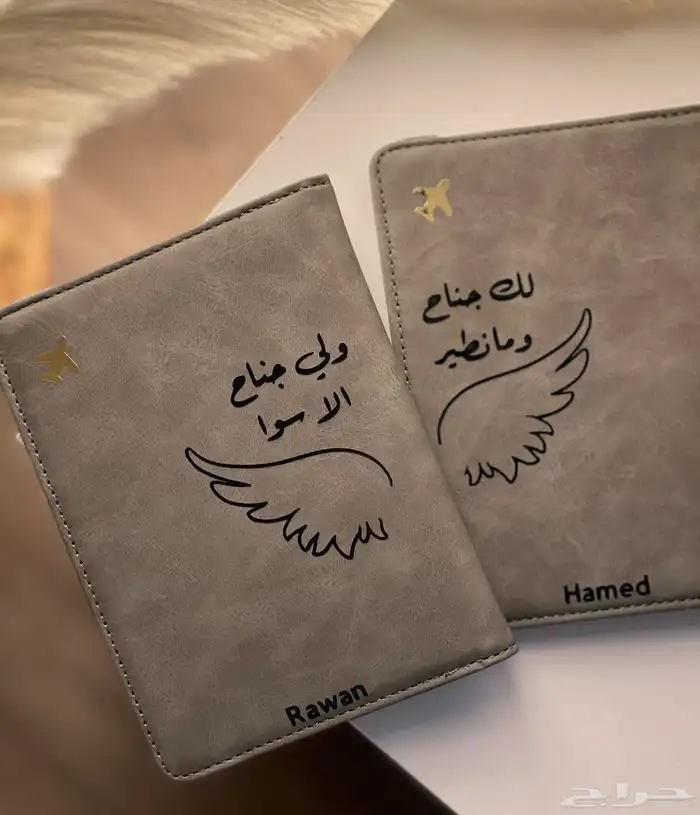 ولي جناح
الا سوا
Rawan
لك جناح
ومانطير
Hamed
حراج